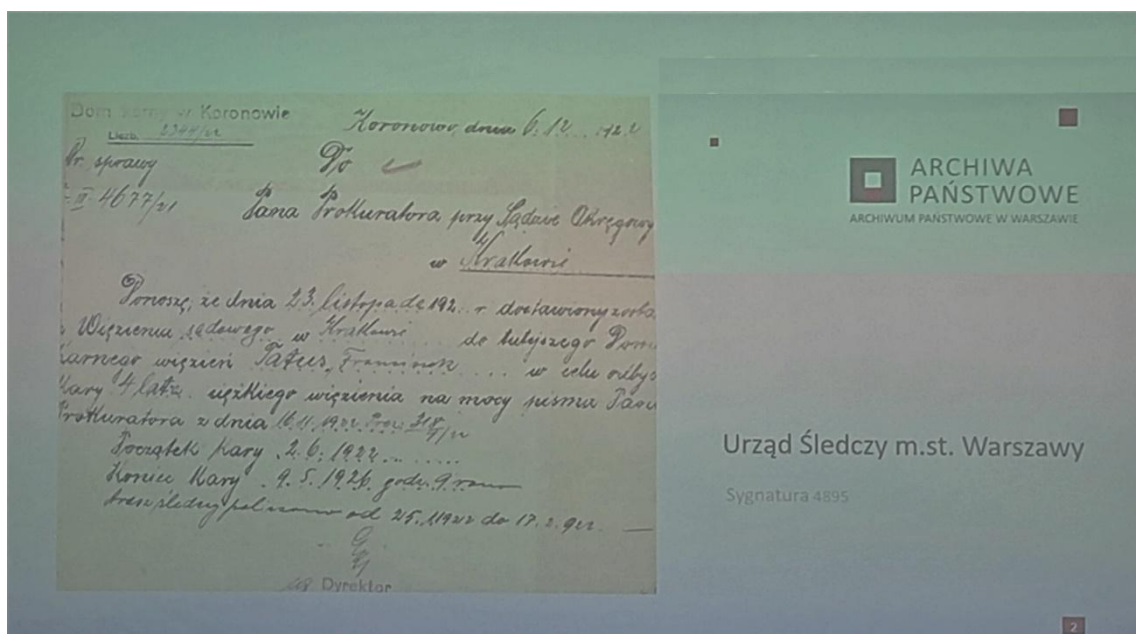 Dom karny w Koronowie
Liczb. 2344/22
Koronowo, dnia 6. 12. 1922
Nr. sprawy
III. 4677/21
Do
Pana Prokuratora przy Sądzie Okręgowy
w Krakowie
Donoszę, że dnia 23. listopada 192.. r. dostawiony zosta
z Więzienia sądowego w Krakowie do tutejszego Domu
karnego więzień Tatus, Franciszek .... w celu odbyc
kary 4 lata ciężkiego więzienia na mocy pisma Pana
Prokuratora z dnia 16.11.1922
Początek kary . 2. 6. 1922 ..
Koniec kary . 9. 5. 1926 godz. 9 rano
Areszt śledczy policzono od 25. 1 1922 do 17. 2. 922.
Dyrektor
ARCHIWA
PAŃSTWOWE
ARCHIWUM PAŃSTWOWE W WARSZAWIE
Urząd Śledczy m.st. Warszawy
Sygnatura 4895
2